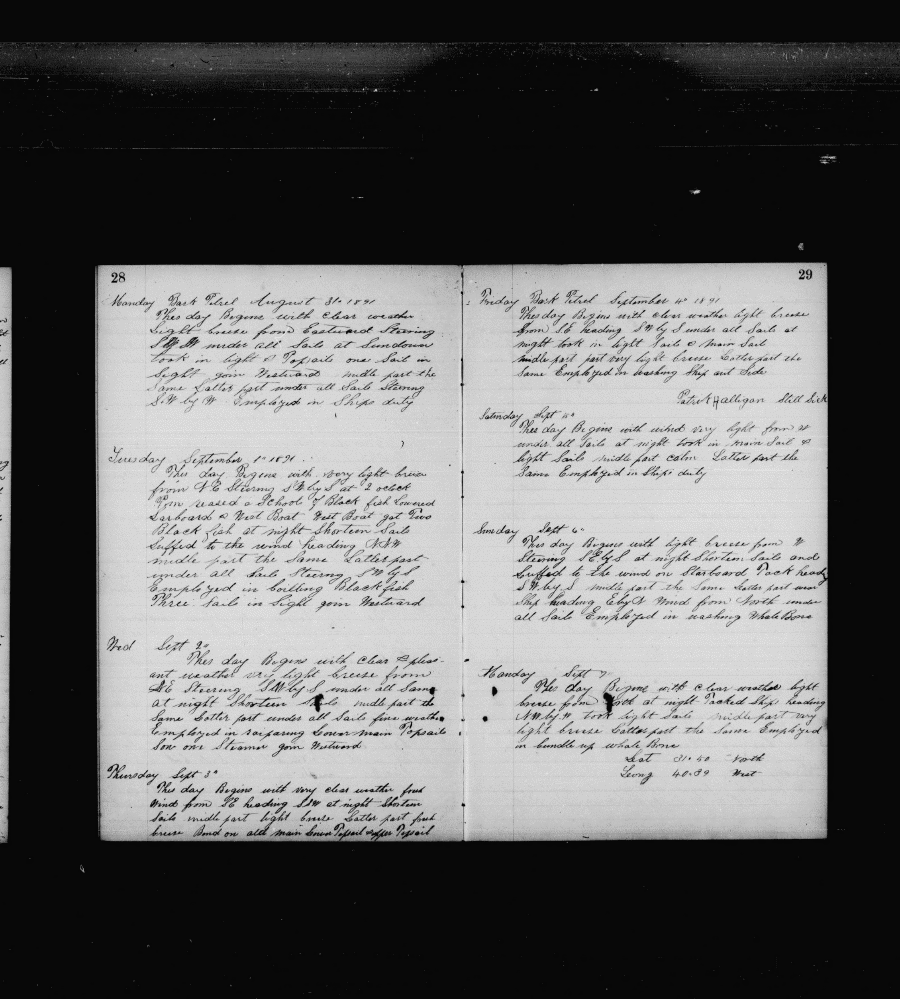 28
Monday Bark Petrel August 31st 1891
This day Begins with clear weather
Light breese from Eastward Steering
under all Sails at Sundown
took in light & Topsails one Sail in
Sight goin Westward midle part the
Same Latter part under all Sails Steering
S.W by W Employed in Ships duty
Tuesday September 1st 1891
This day Begins with very light breese
from N.E Steering SW by S at 2 oclock
a School of Black fish Lowered
Larboard & West Boat West Boat got Two
Black fish at night Shorten Sails
Luffed to the wind heading NNW
midle part the Same Latter part
under all Sails Steering SW by S
Employed in boiling Black fish
Three Sails in Sight goin Westward
Wed Sept 2nd
This day Begins with clear & pleas-
ant weather very light breese from
Steering SW by S under all Same
at night Shorten midle part the
Same Latter part under all Sails fine weather
Employed in Lower main Topsails
one Steamer goin Westward
Thursday Sept 3d
This day Begins with very clear weather fresh
Wind from SE heading SSW at night Shorten
Sails midle part light breese Latter part fresh
breese Bend on main Lower Topsail upper Topsail
29
Friday Bark Petrel September 4th 1891
This day Begins with clear weather light breese
from SE heading SW by S under all Sails at
night took in light Sails & Main Sail
midle part very light breese Latter part the
Same Employed in washing Ship out Side
Patrick Halligan Still Sick
Saturday Sept 5th
This day Begins with wind very light from W
under all Sails at night took in main Sail &
light Sails midle part calm Latter part the
Same Employed in Ships duty
Sunday Sept 6th
This day Begins with light breese from W
Steering SE by S at night Shorten Sails and
Luffed to the wind on Starboard Tack heady
SW by S midle part the Same Latter part
Ship heading E by N Wind from North under
all Sails Employed in washing Whale Bone
Monday Sept 7
This day Begins with clear weather light
breese from at night Tacked Ship heading
NW by W took light Sails midle part very
light breese Latter part the Same Employed
in bundle up whale Bone
Lat 31.50 North
Long 40.39 West